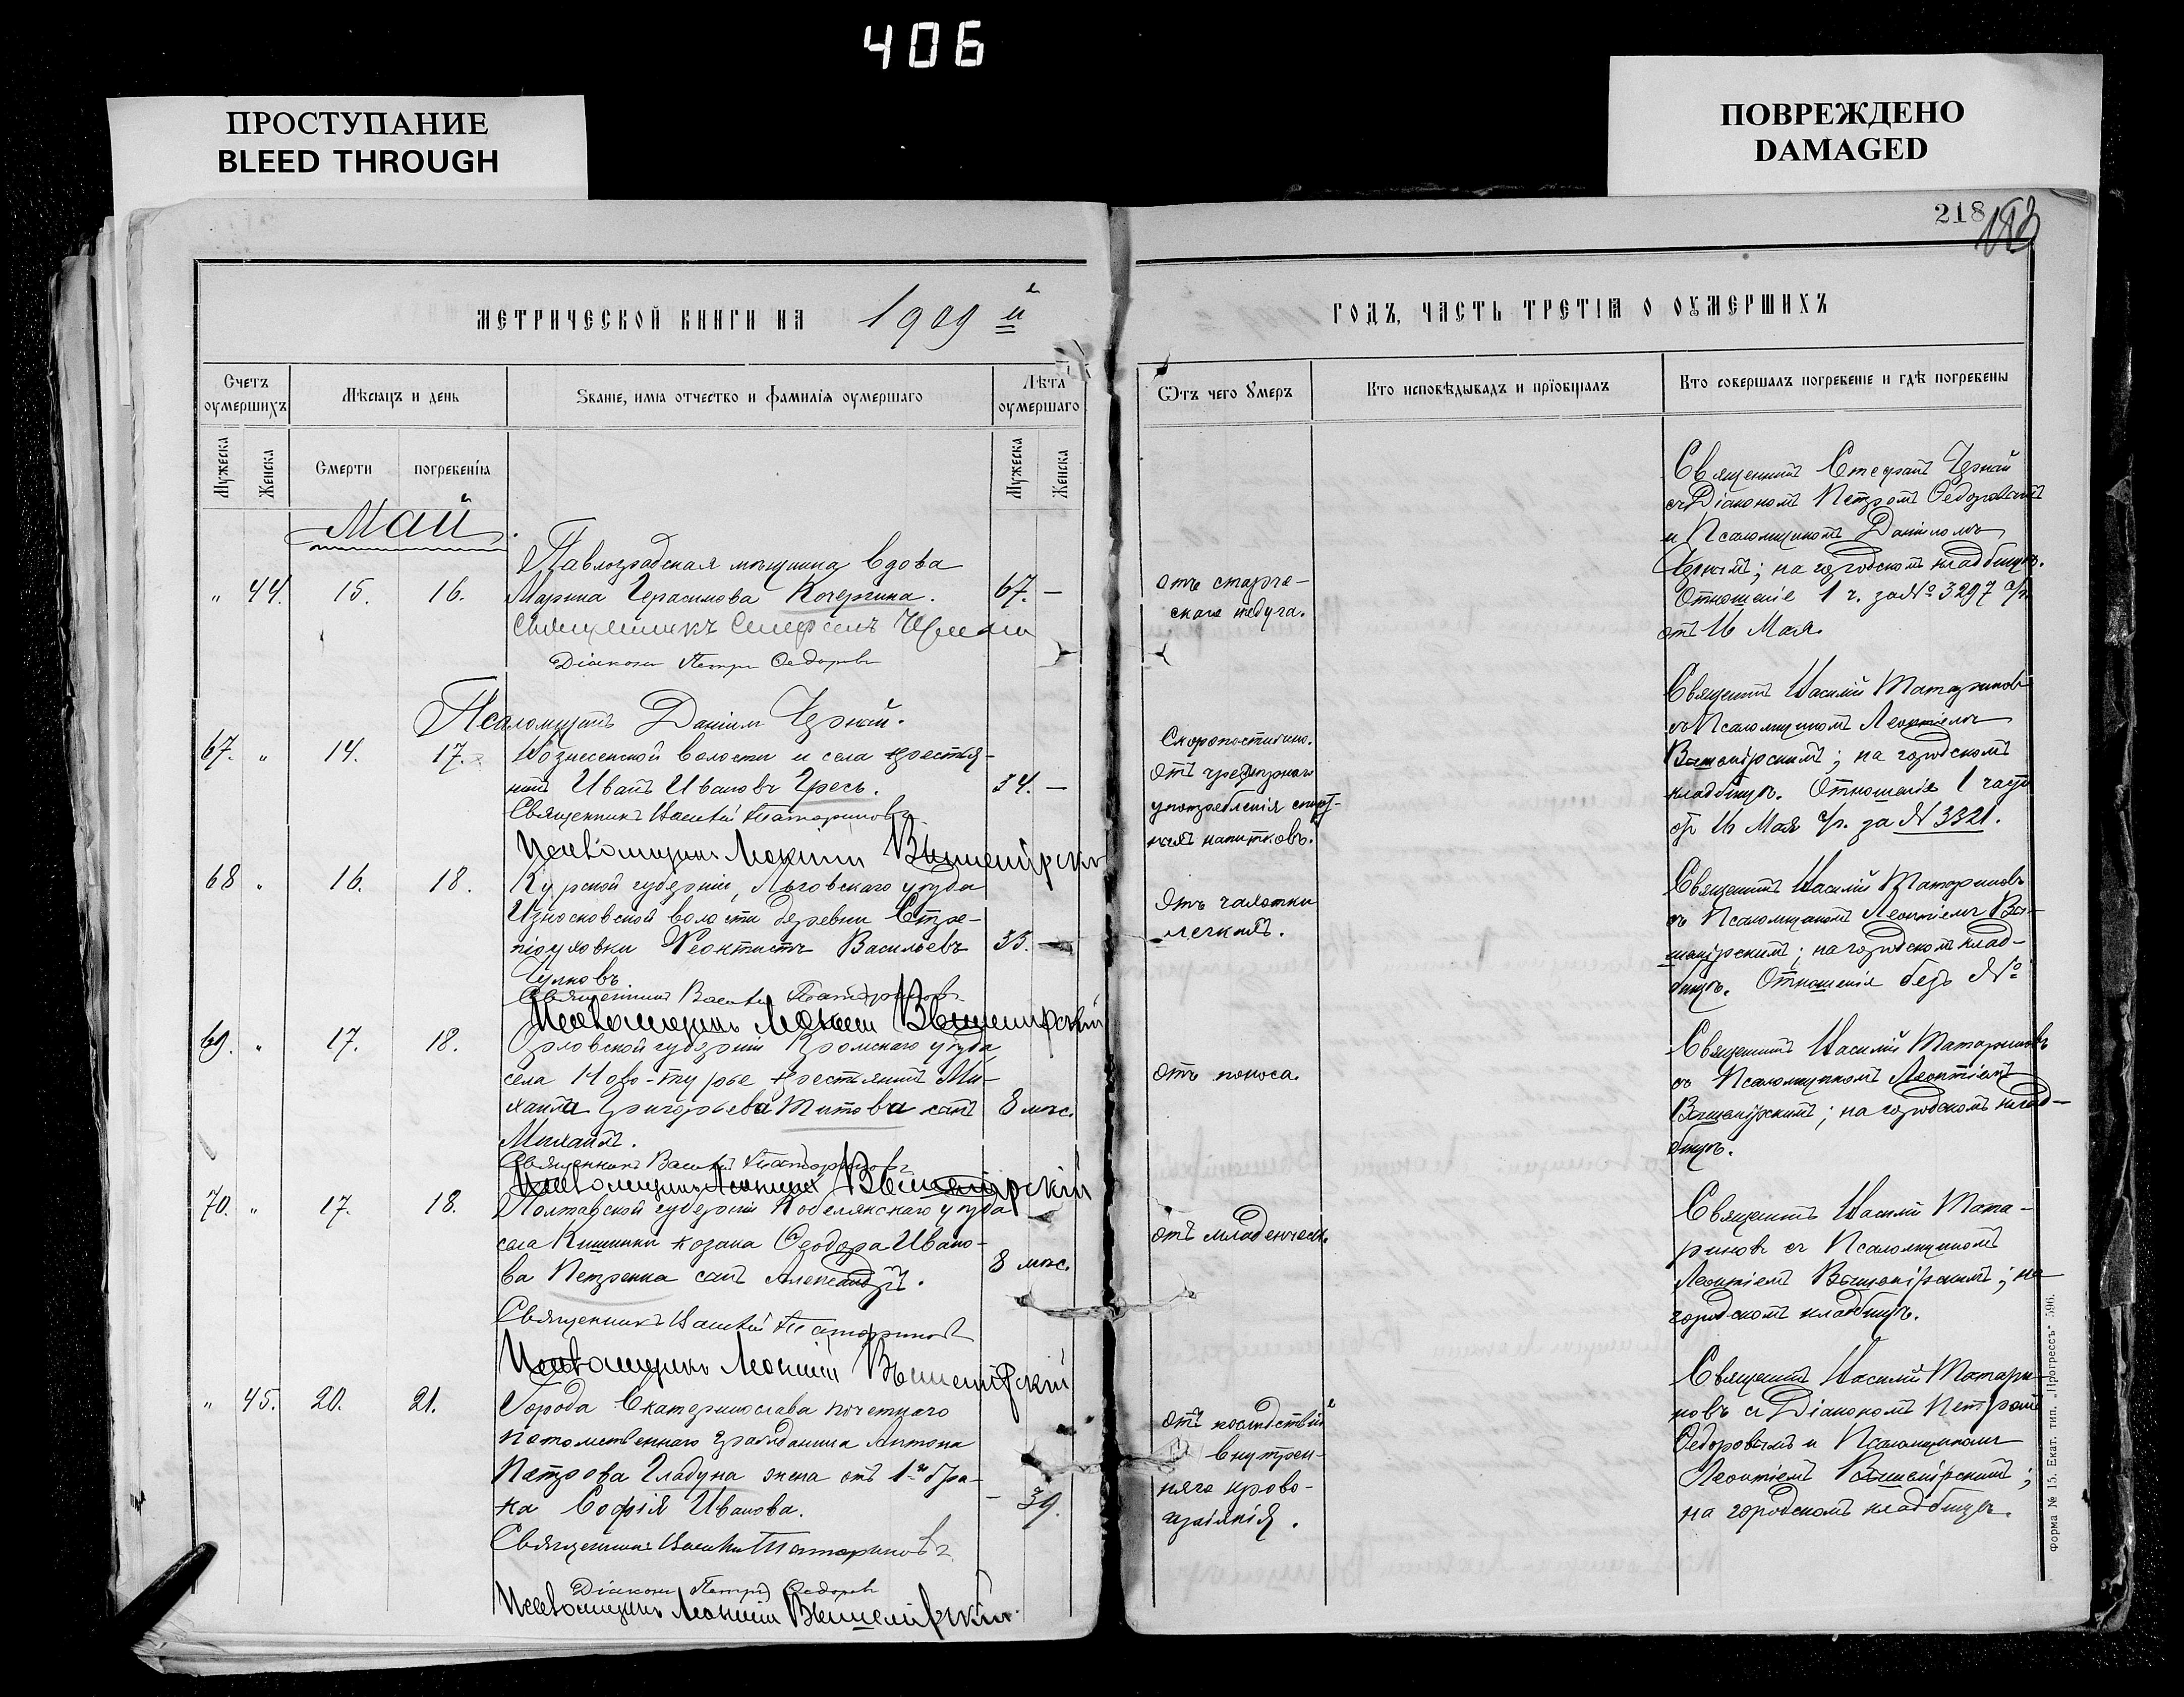 406
ПРОСТУПАНИЕ
BLEED THROUGH
ПОВРЕЖДЕНО
DAMAGED
218
МЕТРИЧЕСКОЙ КНИГИ НА 1909 й
ГОДЪ, ЧАСТЬ ТРЕТІѦ О ОУМЕРШИХЪ
Счетъ оумершихъ
Мѣсяцъ и день
Званіе, имѧ отчество и фамилія оумершаго
Лѣта оумершаго
Ѿтъ чего Умеръ
Кто исповѣдывалъ и пріобщалъ
Кто совершалъ погребеніе и гдѣ погребены
Мужеска
Женска
Смерти
погребеніѧ
Мужеска
Женска
Май
Павлоградская мѣщанка вдова
" 44. 15. 16. Марина Герасимова Кочергина. 67. —
Священникъ Стефанъ Черный
Діаконъ Петръ Федоровъ
Псаломщикъ Даніилъ Черный.
отъ старче-
скаго недуга.
Священникъ Стефанъ Черный
съ Діакономъ Петромъ Федоровымъ
и Псаломщикомъ Даніиломъ
Чернымъ; на городскомъ кладбищѣ.
Отношеніе 1 ч. за № 3297 с/г.
отъ 16 Мая.
67. " 14. 17. Вознесенской волости и села крестья-
нинъ Иванъ Ивановъ Гресь. 34. —
Священникъ Василій Татариновъ
Псаломщикъ Леонтій Вышемірскій
Скоропостижно.
отъ чрезмѣрнаго
употребленія спирт-
ныхъ напитковъ.
Священникъ Василій Татариновъ
съ Псаломщикомъ Леонтіемъ
Вышемірскимъ; на городскомъ
кладбищѣ. Отношеніе 1 части
отъ 16 Мая с/г. за № 3321.
68 " 16. 18. Курской губерніи, Льговскаго уѣзда
волости деревни
Феоктистъ Васильевъ 35. —
Чулковъ
Священникъ Василій Татариновъ
Псаломщикъ Леонтій Вышемірскій
Отъ чахотки
легкихъ.
Священникъ Василій Татариновъ
съ Псаломщикомъ Леонтіемъ Вы-
шемірскимъ; на городскомъ клад-
бищѣ. Отношенія безъ №
69. " 17. 18. Орловской губерніи Кромскаго уѣзда
села крестьянина Ми-
хаила Григорьева Титова сынъ 8 мѣс.
Михаилъ.
Священникъ Василій Татариновъ
Псаломщикъ Леонтій Вышемірскій
отъ поноса.
Священникъ Василій Татариновъ
съ Псаломщикомъ Леонтіемъ
Вышемірскимъ; на городскомъ клад-
бищѣ.
70. " 17. 18. Полтавской губерніи Кобелякскаго уѣзда
села Кишинки козака Феодора Ивано-
ва Петренка сынъ Александръ. 8 мѣс.
Священникъ Василій Татариновъ
Псаломщикъ Леонтій Вышемірскій
отъ младенческ.
Священникъ Василій Тата-
риновъ съ Псаломщикомъ
Леонтіемъ Вышемірскимъ; на
городскомъ кладбищѣ.
" 45. 20. 21. Города Екатеринослава почетнаго
потомственнаго гражданина Антона
Петрова Гладуна жена отъ 1-го бра-
ка Софія Иванова. — 39.
Священникъ Василій Татариновъ
Діаконъ Петръ Федоровъ
Псаломщикъ Леонтій Вышемірскій
отъ послѣдствій
внутрен-
няго крово-
изліянія.
Священникъ Василій Татари-
новъ съ Діакономъ Петромъ
Федоровымъ и Псаломщикомъ
Леонтіемъ Вышемірскимъ;
на городскомъ кладбищѣ.
Форма № 15. Екат. тип. „Прогрессъ“ 596.